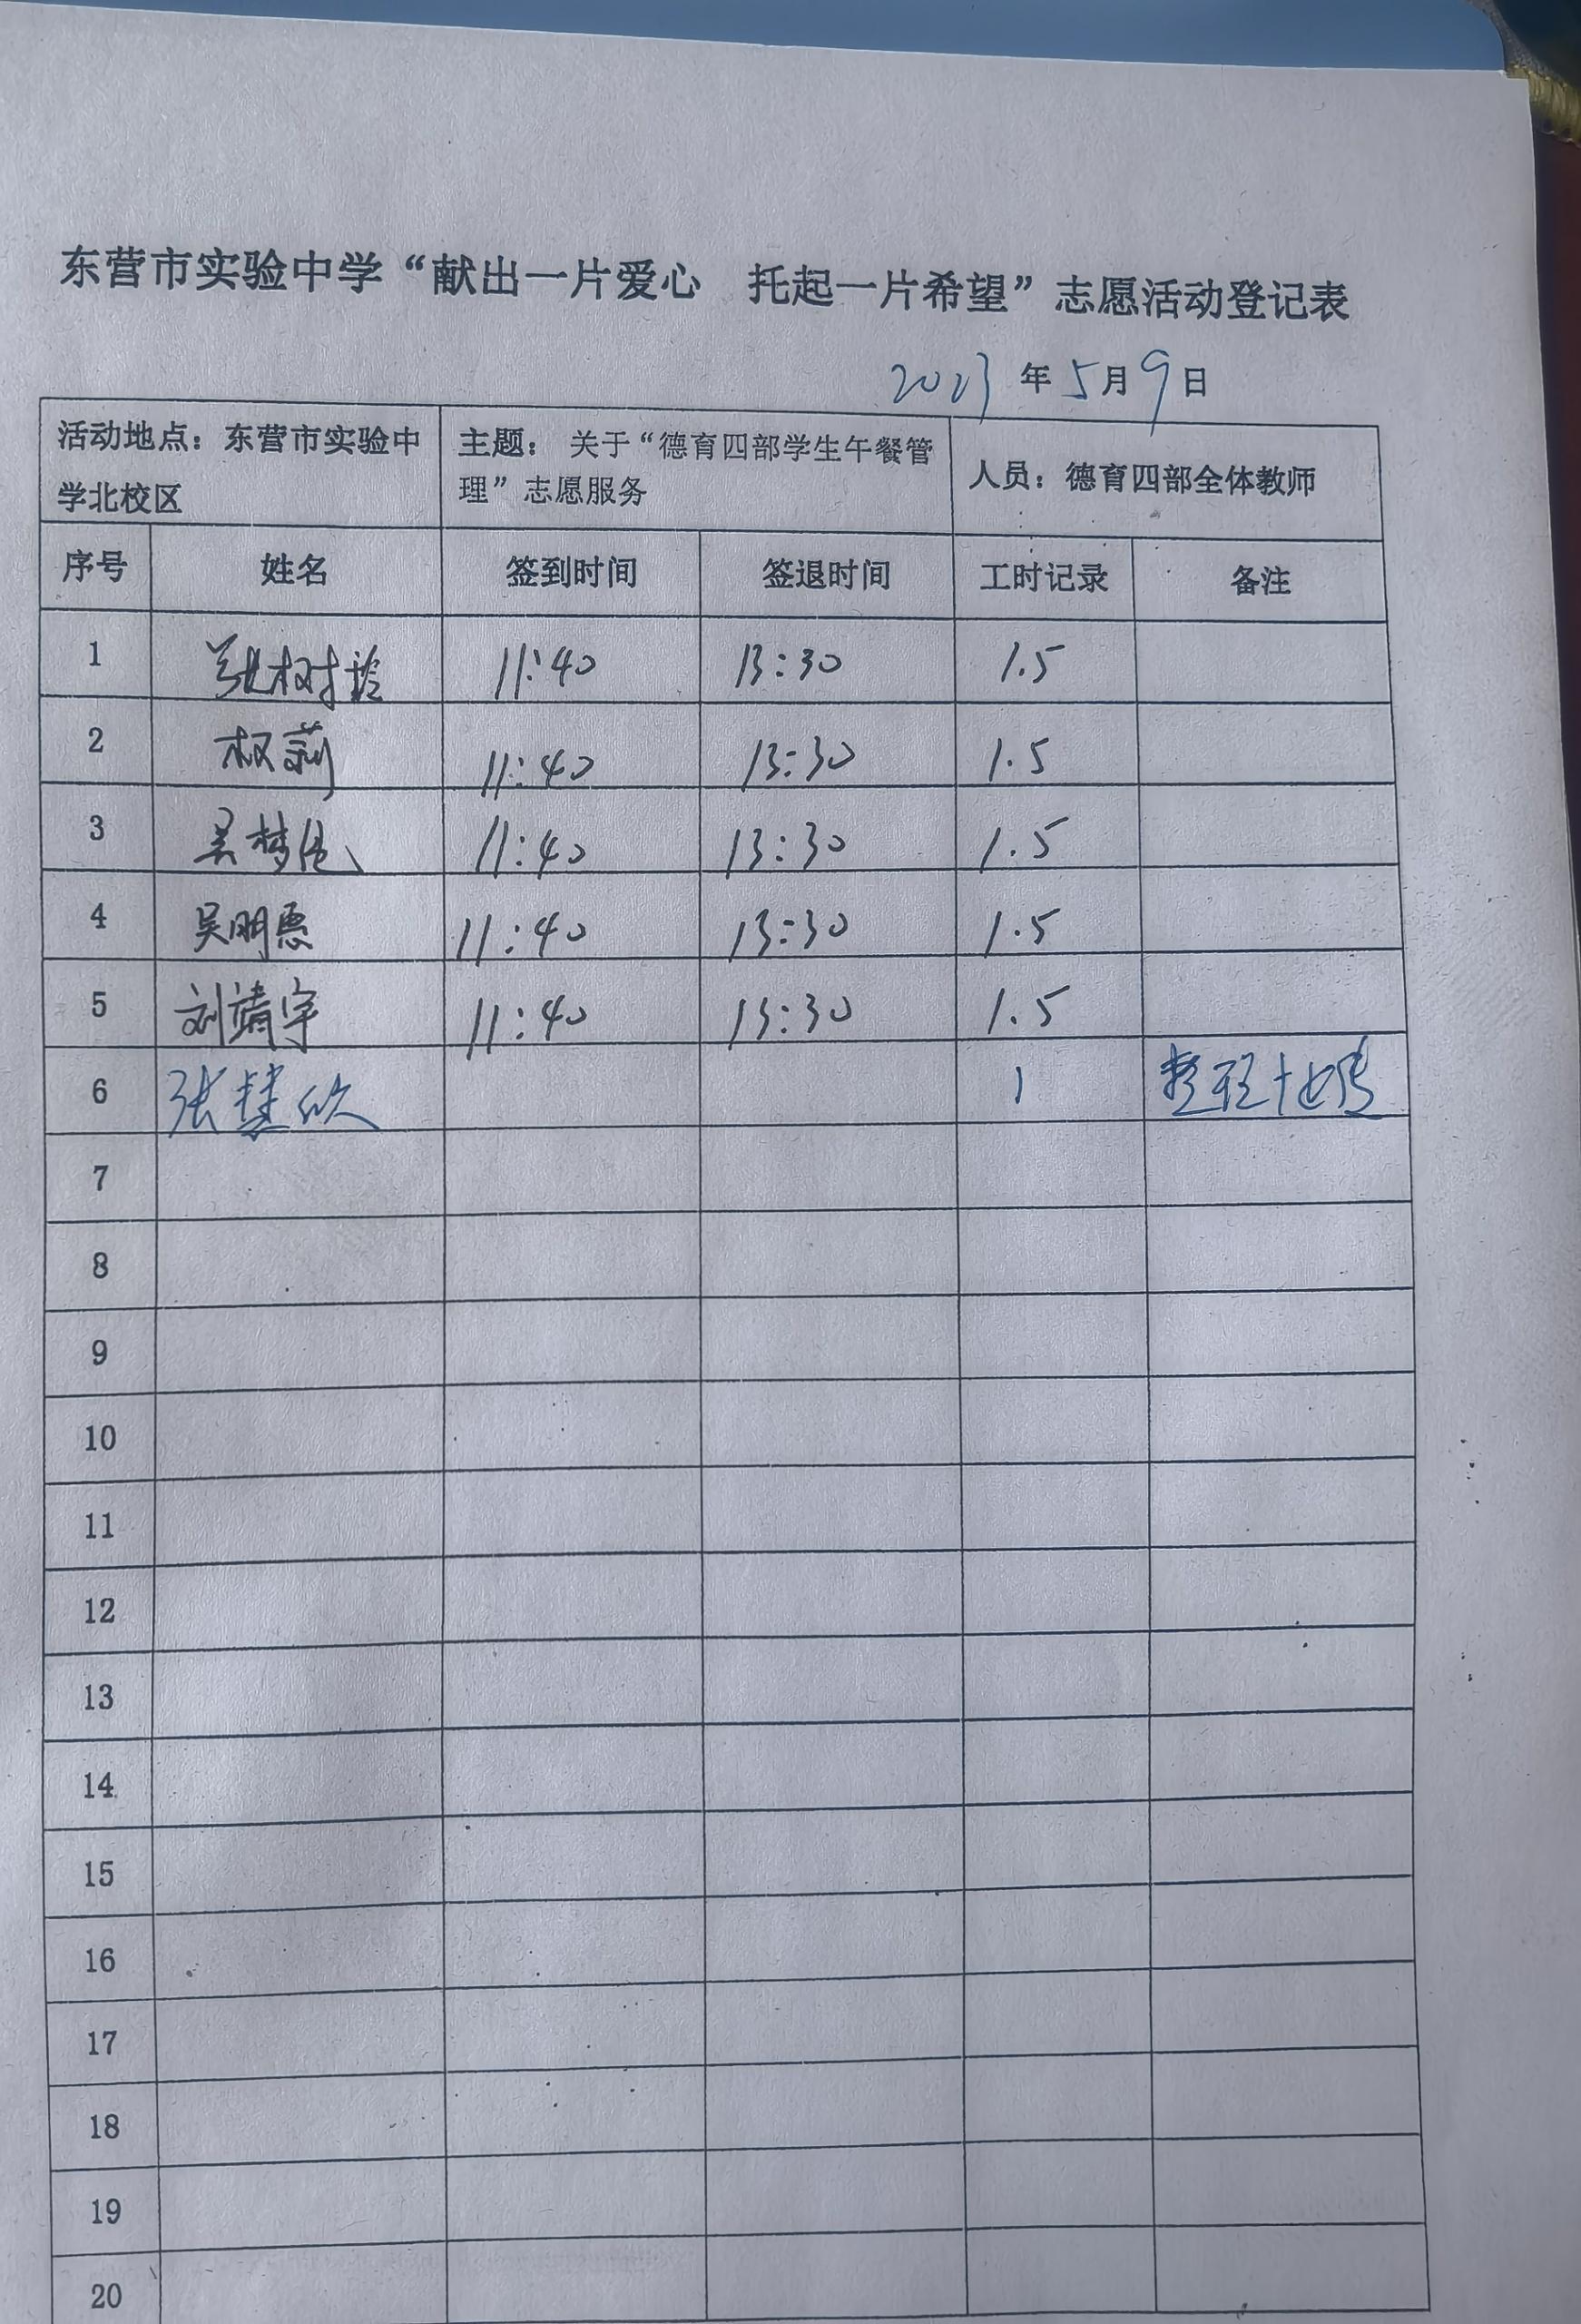 东营市实验中学“献出一片爱心 托起一片希望”志愿活动登记表
2023年5月9日
活动地点：东营市实验中
学北校区
主题：关于“德育四部学生午餐管
理”志愿服务
人员：德育四部全体教师
序号 姓名 签到时间 签退时间 工时记录 备注
1 11:40 13:30 1.5
2 权莉 11:40 13:30 1.5
3 吴梦 11:40 13:30 1.5
4 吴明惠 11:40 13:30 1.5
5 刘靖宇 11:40 13:30 1.5
6 张慧欣 1
7
8
9
10
11
12
13
14
15
16
17
18
19
20